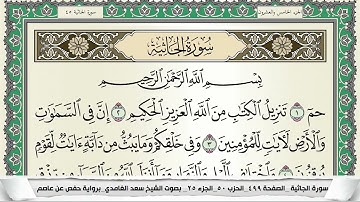 الجزء الخامس والعشرون
سورة الجاثية ٤٥
سُورَةُ الجَاثِيَةِ
بِسْمِ اللَّهِ الرَّحْمَٰنِ الرَّحِيمِ
حمٓ ١ تَنزِيلُ الْكِتَابِ مِنَ اللَّهِ الْعَزِيزِ الْحَكِيمِ ٢ إِنَّ فِي السَّمَاوَاتِ
وَالْأَرْضِ لَآيَاتٍ لِّلْمُؤْمِنِينَ ٣ وَفِي خَلْقِكُمْ وَمَا يَبُثُّ مِن دَابَّةٍ آيَاتٌ لِّقَوْمٍ
سورة الجاثية _ الصفحة ٤٩٩ _ الحزب ٥٠ _ الجزء ٢٥ _ بصوت الشيخ سعد الغامدي _ برواية حفص عن عاصم